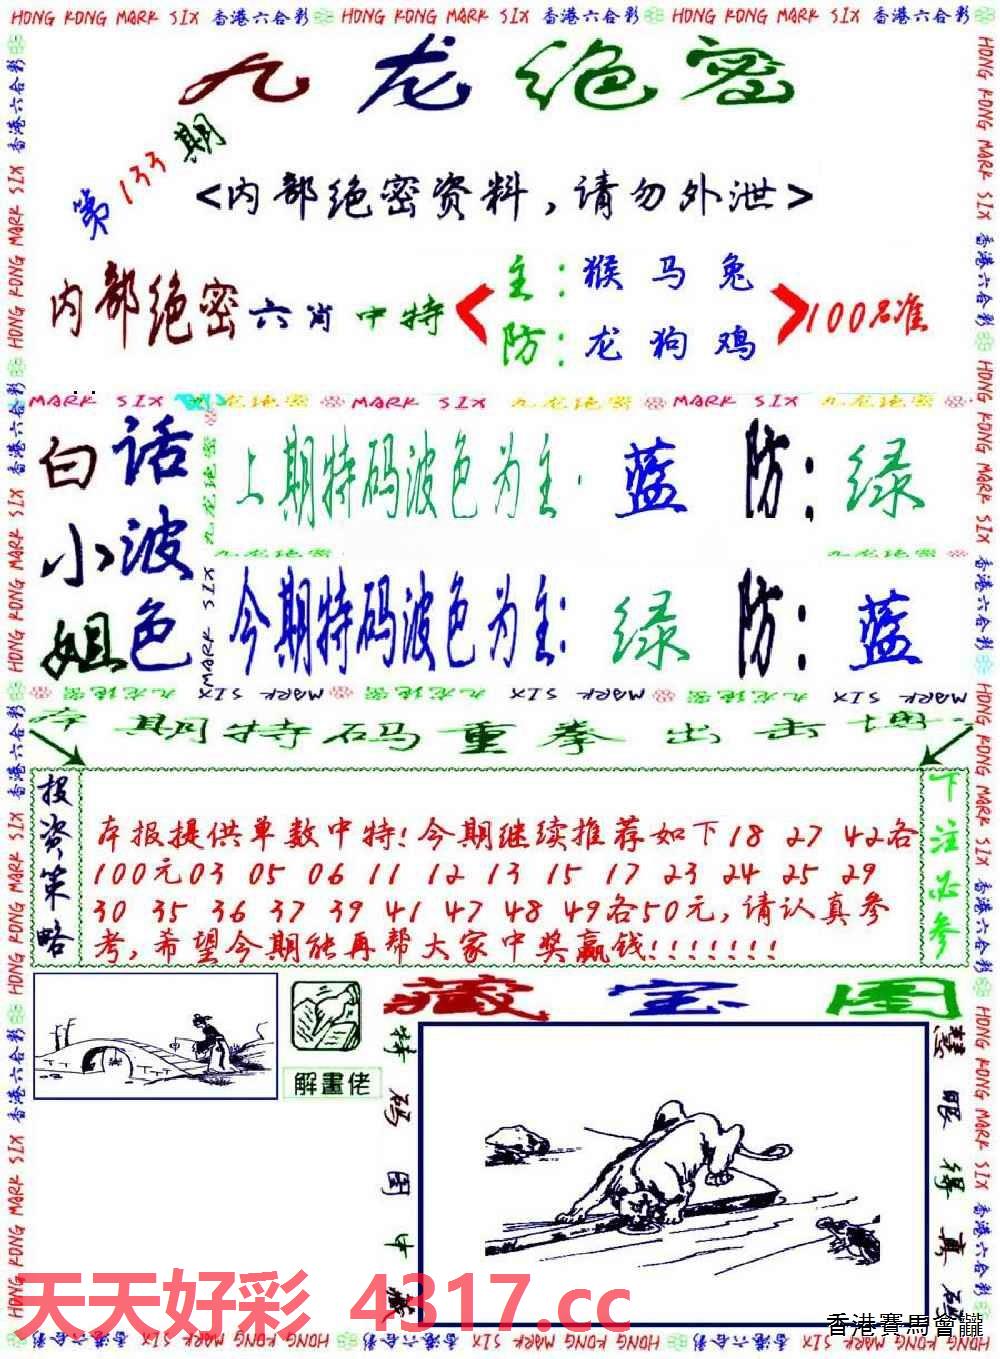 HONG KONG MARK SIX 香港六合彩 HONG KONG MARK SIX 香港六合彩 HONG KONG MARK SIX 香港六合彩
九龙绝密
第133期
<内部绝密资料,请勿外泄>
内部绝密六肖中特
主:猴马兔
防:龙狗鸡
100%准
MARK SIX 九龙绝密 MARK SIX 九龙绝密 MARK SIX 九龙绝密
白小姐
话波色
上期特码波色为主:蓝 防:绿
九龙绝密
今期特码波色为主:绿 防:蓝
本期特码重拳出击
投资策略
下注必参
本报提供单数中特!今期继续推荐如下18 27 42各
100元03 05 06 11 12 13 15 17 23 24 25 29
30 35 36 37 39 41 47 48 49各50元,请认真参
考,希望今期能再帮大家中奖赢钱!!!!!!!
藏宝图
解畫佬
特码图中藏
慧眼得真码
天天好彩 4317.cc
香港賽馬會
HONG KONG MARK SIX 香港六合彩 HONG KONG MARK SIX 香港六合彩 HONG KONG MARK SIX 香港六合彩